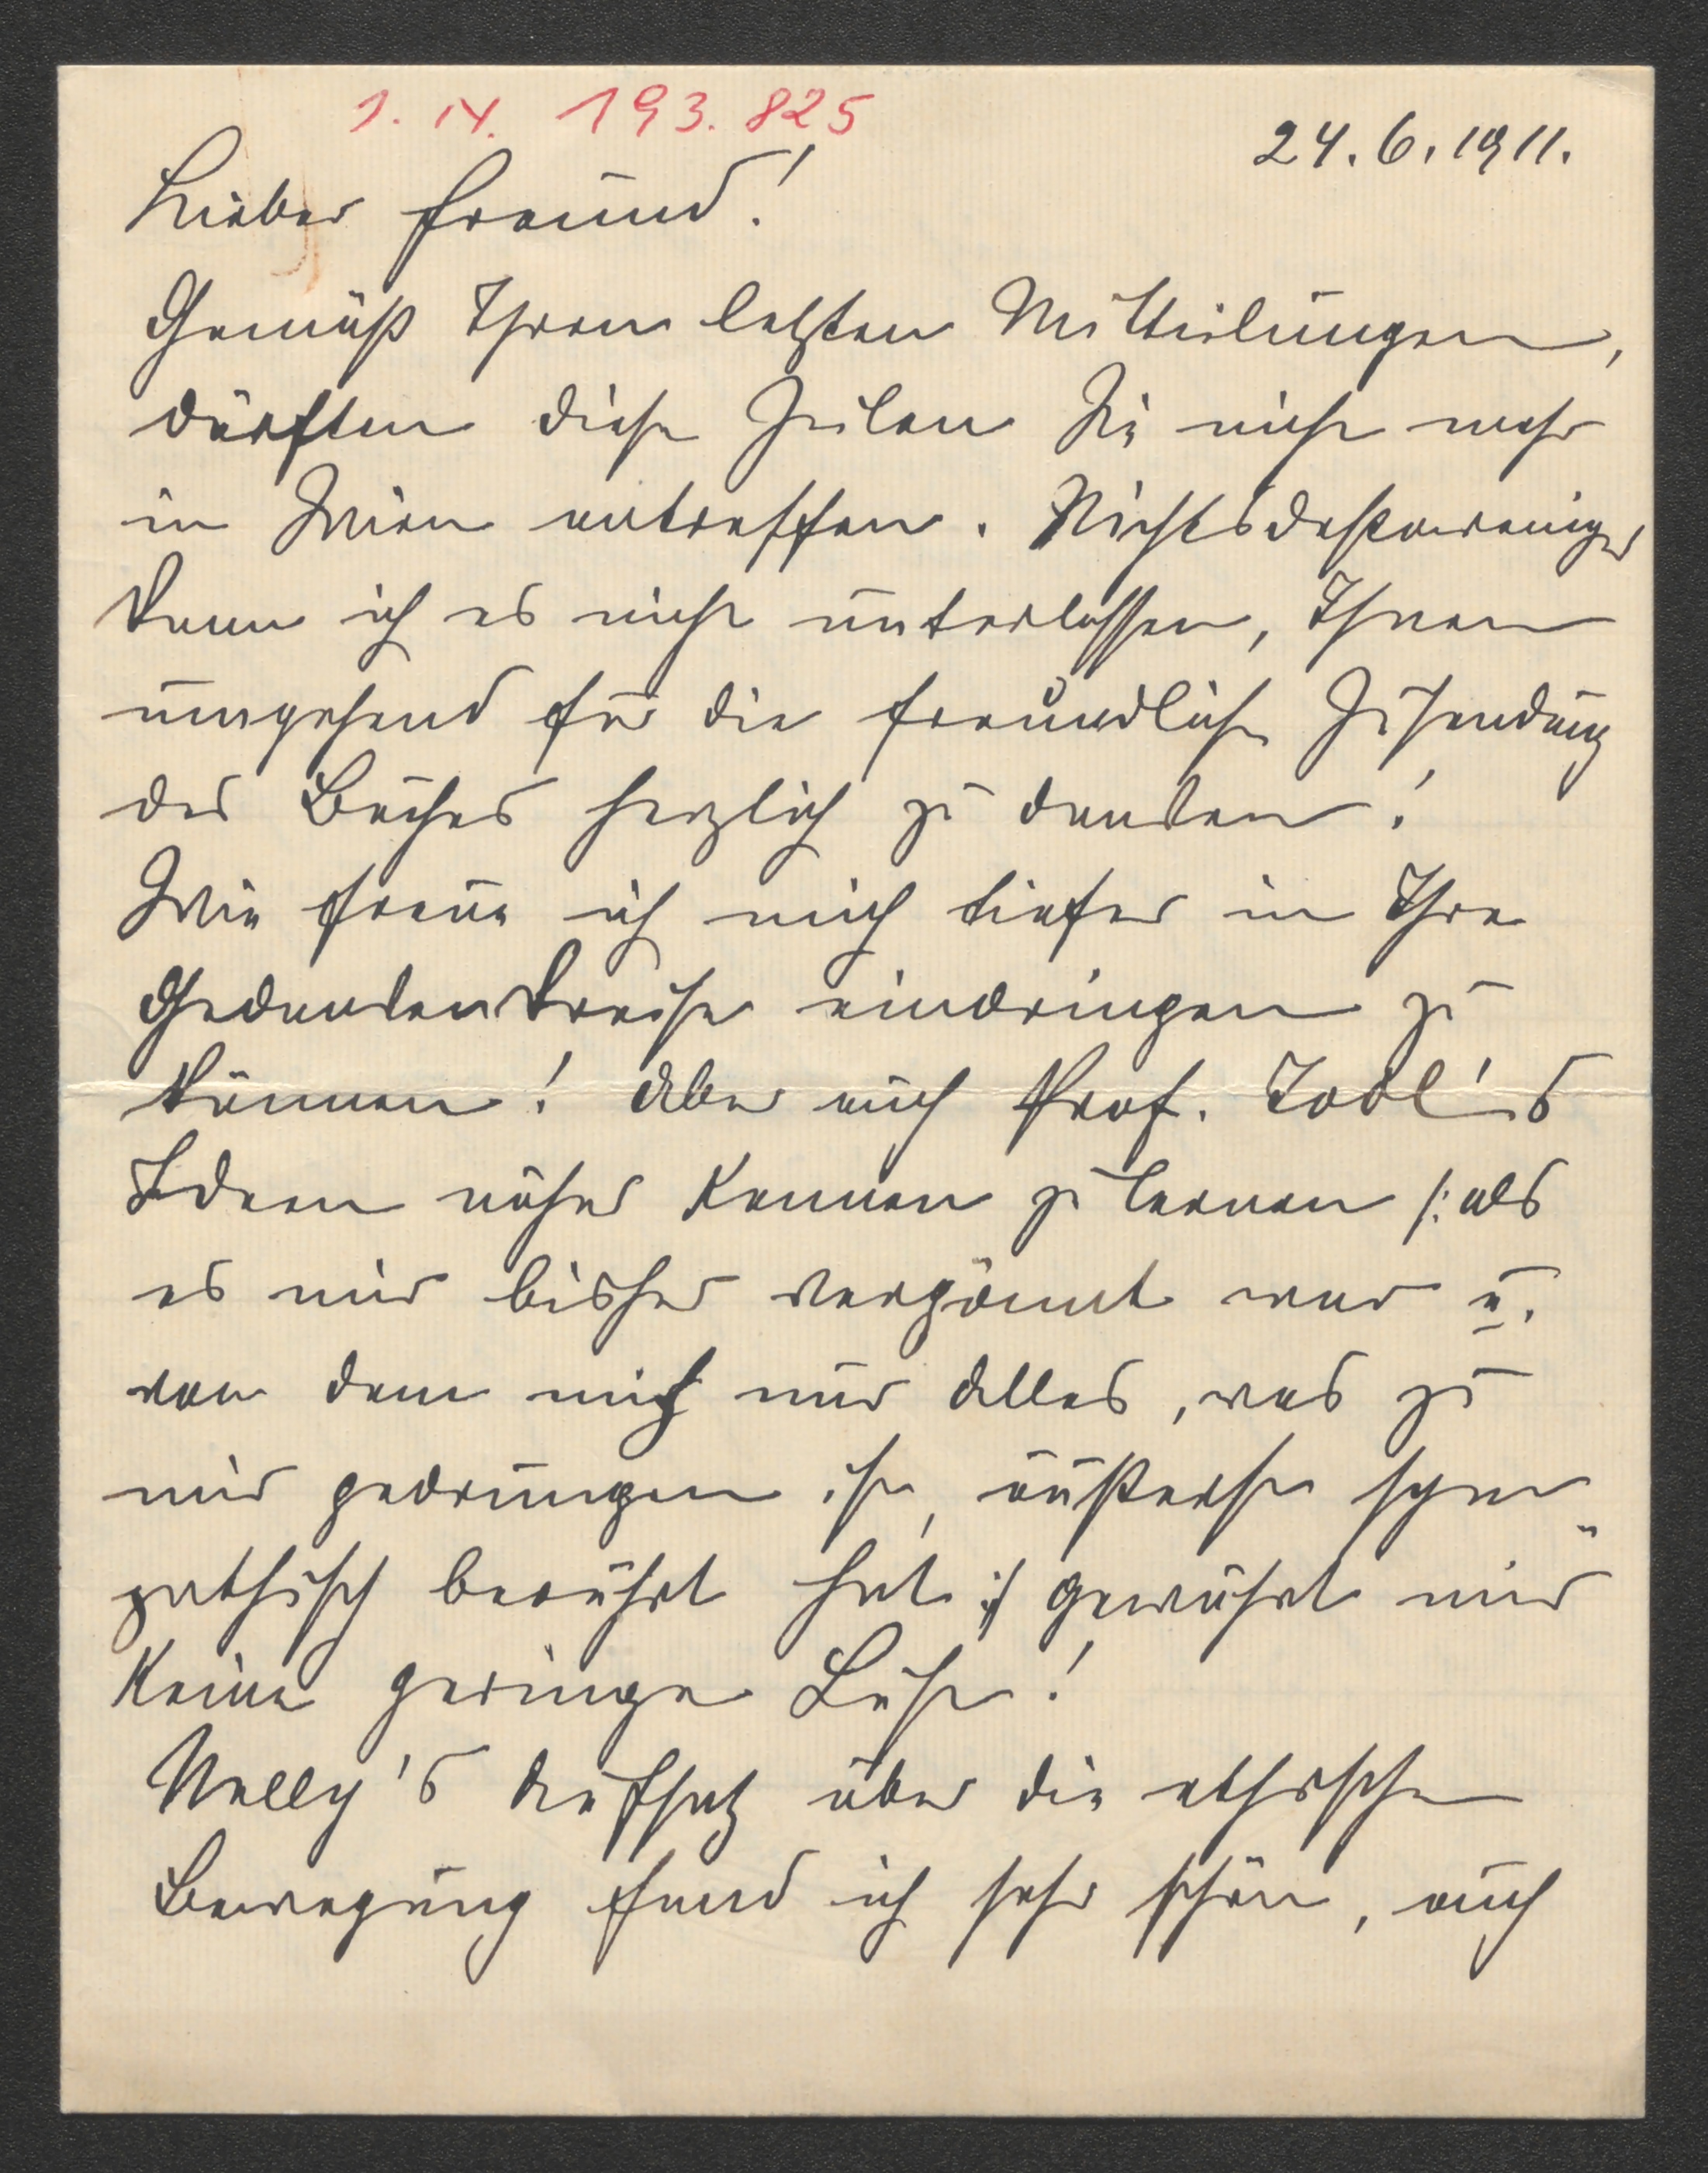 J. N. 193.825
24.6.1911.
Lieber Freund!
Gemäß Ihren letzten Mitteilungen,
dürften diese Zeilen Sie nicht mehr
in Wien antreffen. Nichtsdestoweniger
kann ich es nicht unterlassen, Ihnen
umgehend für die freundliche Zusendung
des Buches herzlich zu danken!
Wie freue ich mich tiefer in Ihre
Gedankenkreise eindringen zu
können! Aber auch Prof. Jodl's
Ideen näher kennen zu lernen /: als
es mir bisher vergönnt war u.
von dem mich nur Alles, was zu
mir gedrungen ist, äußerst sym-
pathisch berührt hat :/ gewährt mir
keine geringe Lust!
Nelly's Aufsatz über die ethische
Bewegung fand ich sehr schön, auch